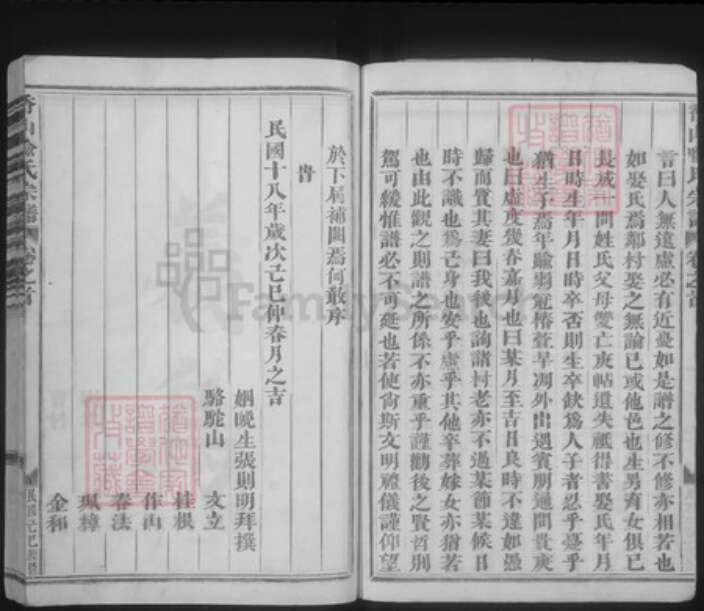 言曰人無遠慮必有近憂如是譜之修不修亦相若也
如娶氏焉鄰村娶之無論已或他邑也生男育女俱已
長成一問姓氏父母雙亡庚帖遺失祇得書娶氏年月
日時生年月日時卒否則生卒缺為人子者忍乎憂乎
猶生子焉年踰弱冠椿萱早凋外出遇賓朋通問貴庚
也曰虛度幾春嘉月也曰某月至吉日良時不達如愚
歸而質其妻曰我後也詢諸村老亦不過某節某候日
時不識也為己身也安乎虛乎其他卒葬嫁女亦猶若
也由此觀之則譜之所係不亦重乎謹勸後之賢哲別
駕可緩惟譜必不可延也若使尚斯文明禮儀謹仰望
於下屆補闕焉何敢序
旹
民國十八年歲次己巳仲春月之吉
姻晚生張則明拜撰
駱駝山 文立
桂根
作山
春法
珮樟
金和
氏宗譜 卷之首
FamilySearch